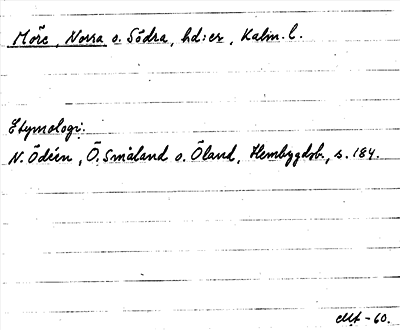 Möre, Norra o. Södra, hd:er, Kalm. l.
Etymologi:
N. Ödéen, Ö. Småland o. Öland, Hembygdsb., s. 184.
-60.